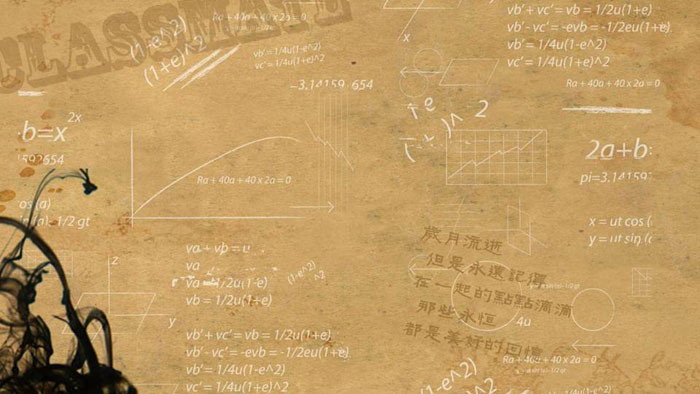 CLASSMATE
Ra + 40a + 40 x 2a = 0
(1-e^2)
(1+e)^2
vb' = 1/4u(1-e^2)
vc' = 1/4u(1+e)^2
-3.14159 654
x
vb' + vc' = vb = 1/2u(1+e)
vb' - vc' = -evb = -1/2eu(1+e)
vb' = 1/4u(1-e^2)
vc' = 1/4u(1+e)^2
Ra + 40a + 40 x 2a = 0
b=x^2x
Ra + 40a + 40 x 2a = 0
1/2 gt
2a+b
x = ut cos (
z
y
va + vb = u
va
va = 1/2u(1-e)
vb = 1/2u(1+e)
(1-e^2)
vb' + vc' = vb = 1/2u(1+e)
vb' - vc' = -evb = -1/2eu(1+e)
vb' = 1/4u(1-e^2)
vc' = 1/4u(1+e)^2
歲月流逝
但是永遠記得
在一起的點點滴滴
那些永恒
都是美好的回憶
4u
Ra + 40a + 40 x 2a = 0
(1-e^2)